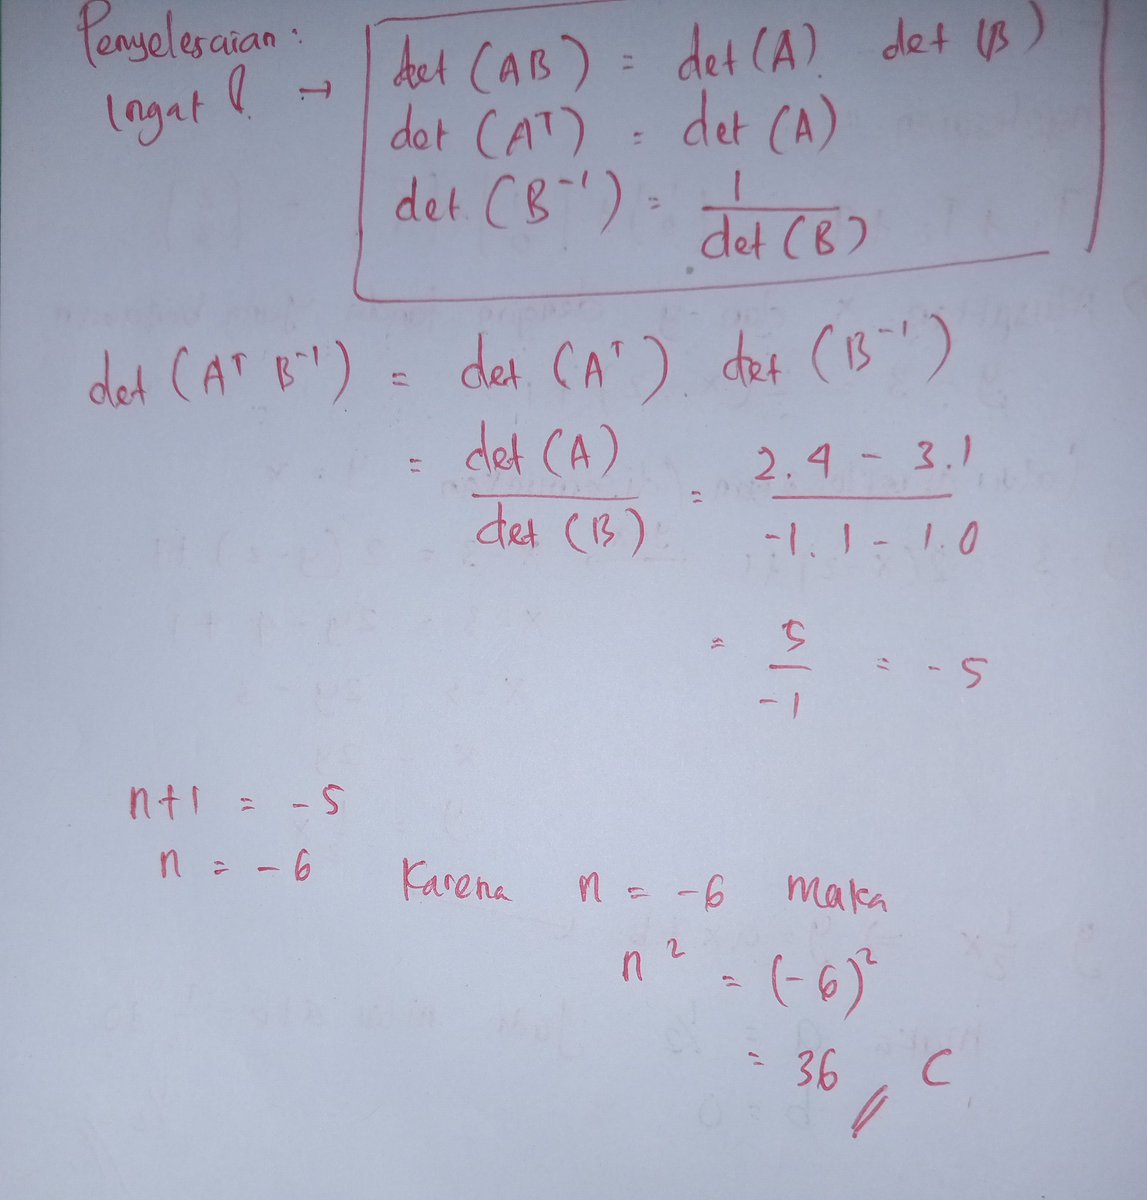 Penyelesaian :
Ingat ! → det (AB) = det (A) . det (B)
det (Aᵀ) = det (A)
det (B⁻¹) = 1 / det (B)
det (Aᵀ B⁻¹) = det (Aᵀ) . det (B⁻¹)
= det (A) / det (B) = 2.4 - 3.1 / -1.1 - 1.0
= 5 / -1 = -5
n+1 = -5
n = -6 Karena n = -6 maka
n² = (-6)²
= 36 // C